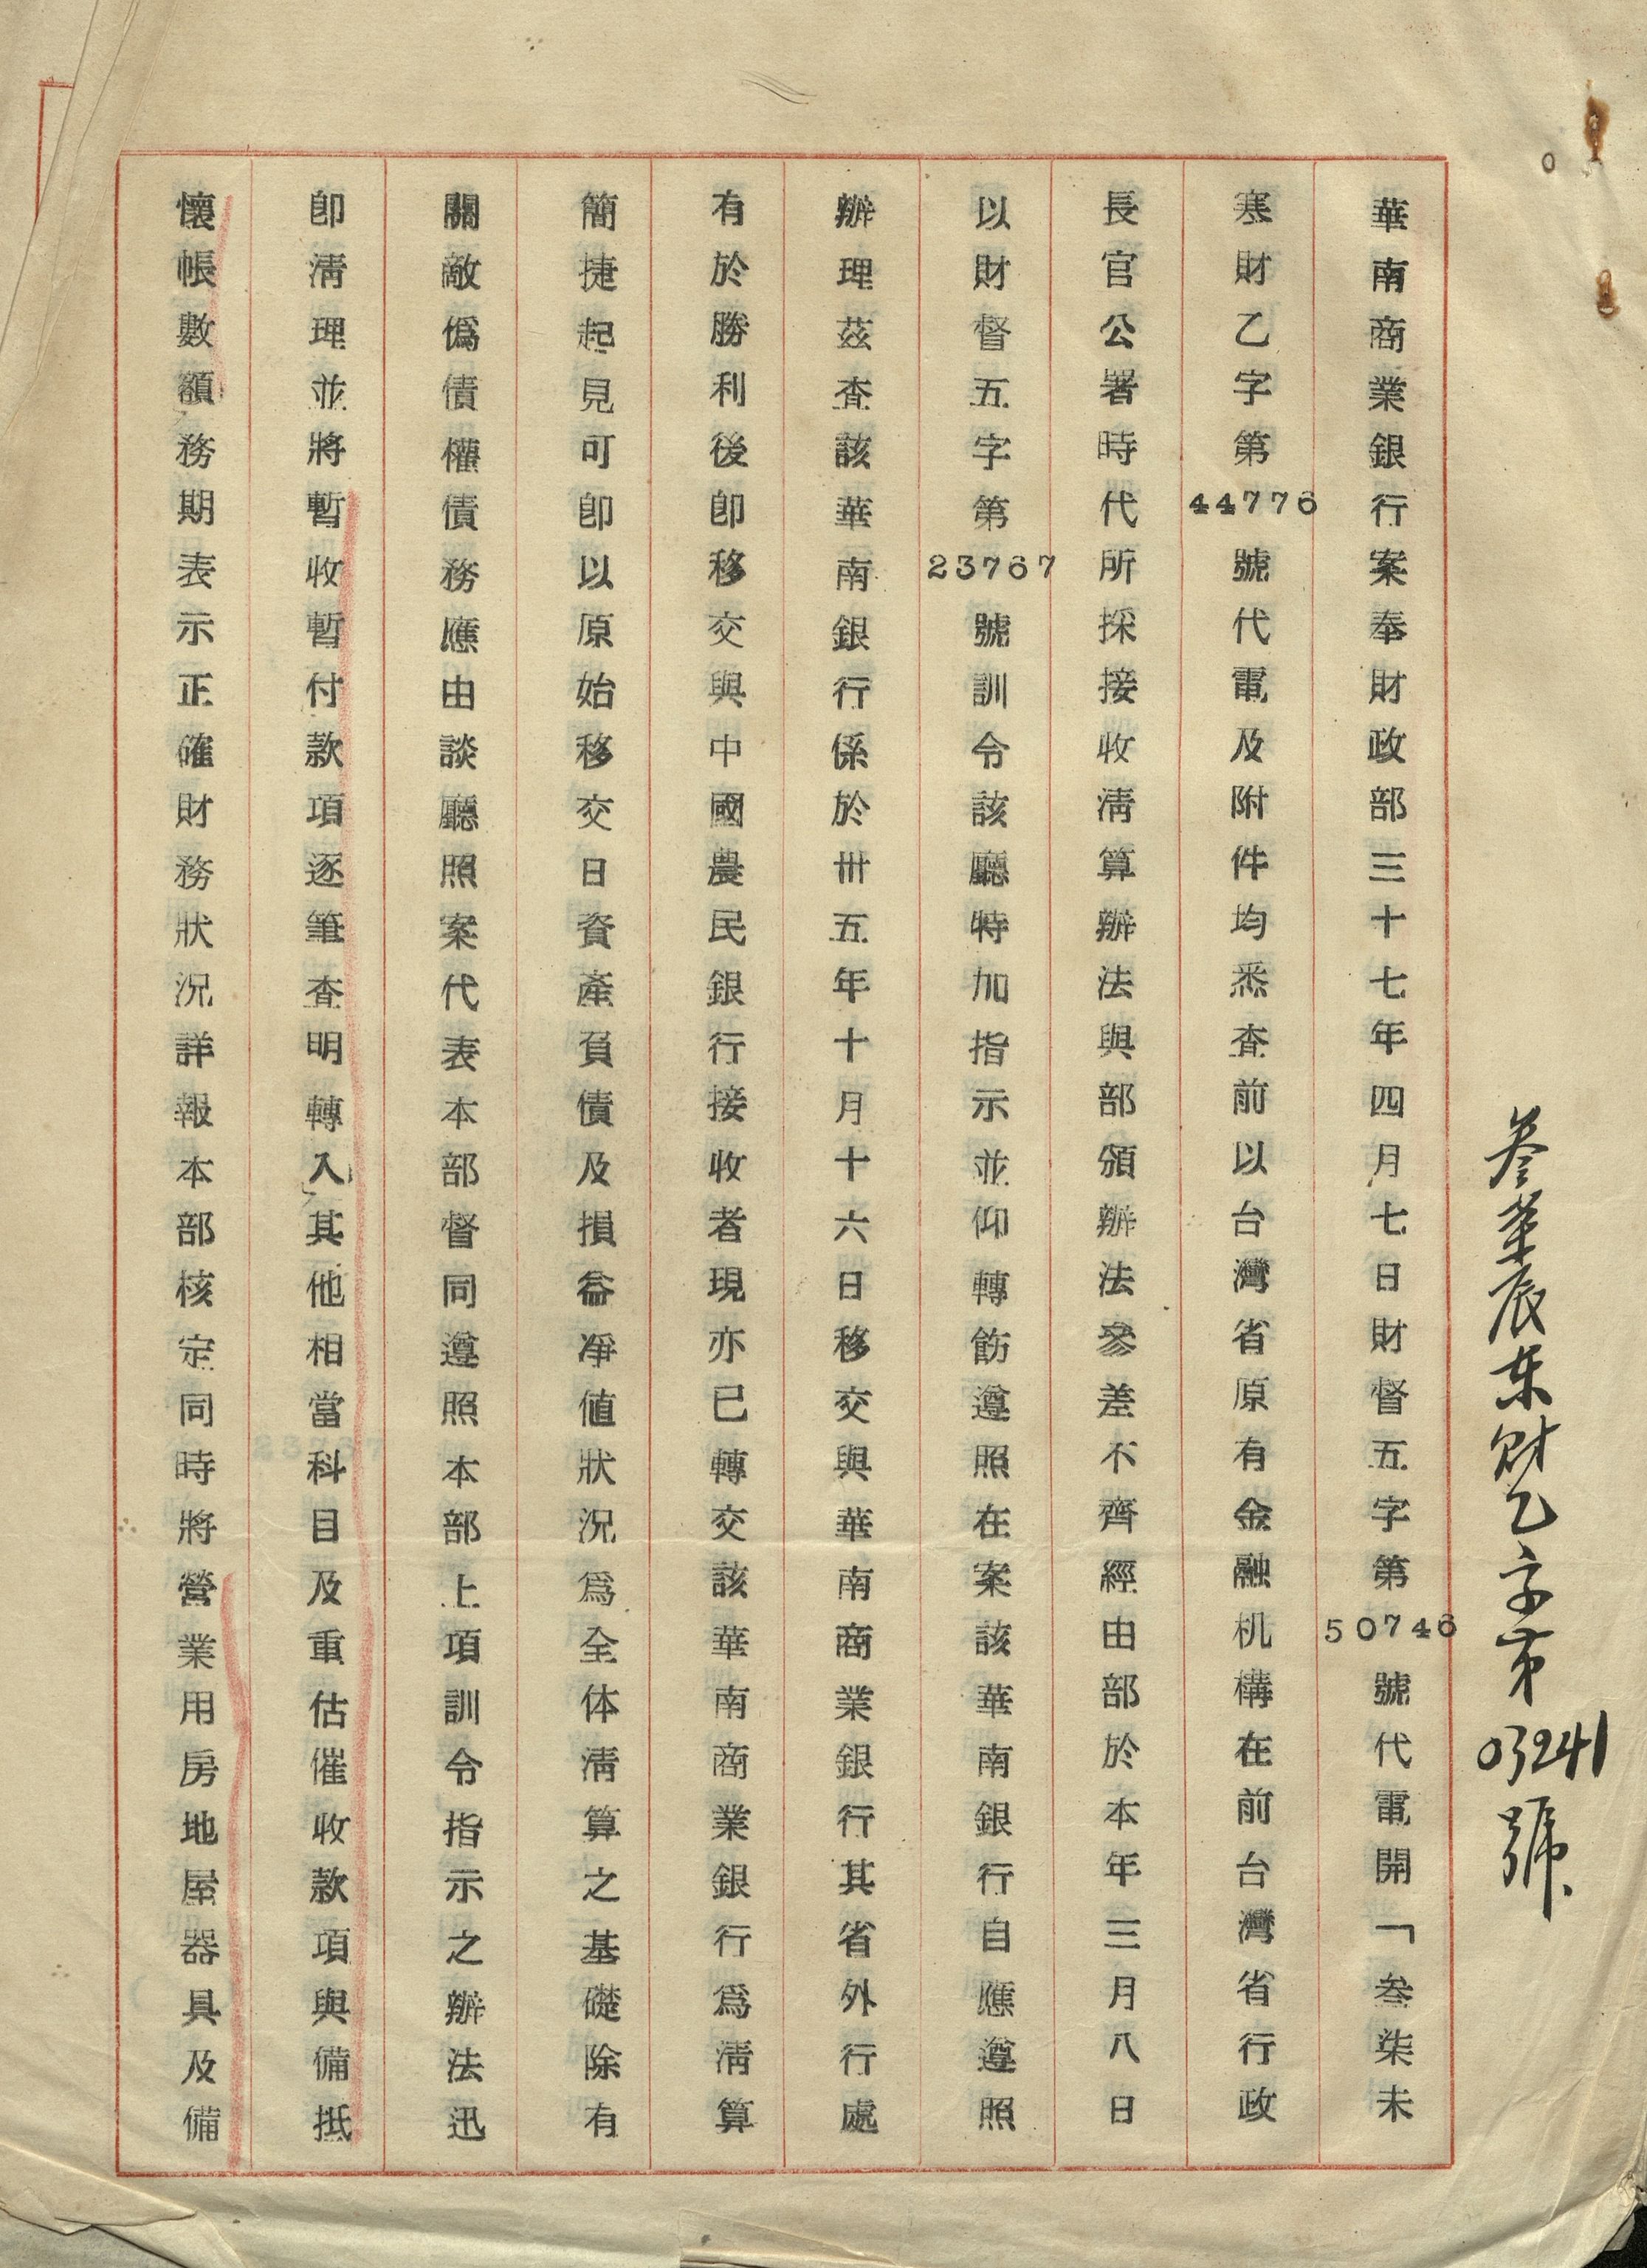 叁柒辰東財乙字第03241號
華南商業銀行案奉財政部三十七年四月七日財督五字第50746號代電開「叁柒未
寒財乙字第44776號代電及附件均悉查前以台灣省原有金融机構在前台灣省行政
長官公署時代所採接收清算辦法與部頒辦法參差不齊經由部於本年三月八日
以財督五字第23767號訓令該廳特加指示並仰轉飭遵照在案該華南銀行自應遵照
辦理茲查該華南銀行係於卅五年十月十六日移交與華南商業銀行其省外行處
有於勝利後即移交與中國農民銀行接收者現亦已轉交該華南商業銀行為清算
簡捷起見可即以原始移交日資產負債及損益凈值狀況為全体清算之基礎除有
關敵偽債權債務應由談廳照案代表本部督同遵照本部上項訓令指示之辦法迅
即清理並將暫收暫付款項逐筆查明轉入其他相當科目及重估催收款項與備抵
懷帳數額務期表示正確財務狀況詳報本部核定同時將營業用房地屋器具及備